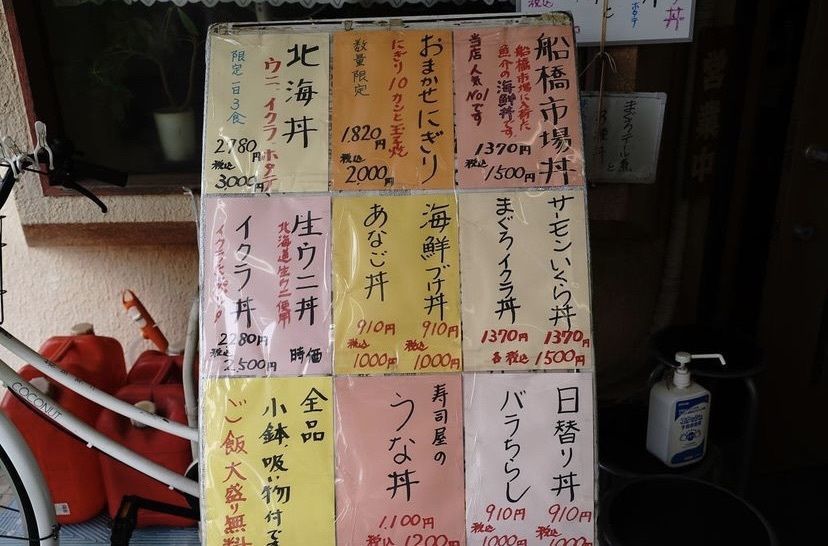 船橋市場丼
船橋市場に入荷した
魚介の海鮮丼です。
当店人気No1です
1370円
税込
1500円
おまかせにぎり
にぎり10カンと玉子焼
数量限定
1.820円
税込
2.000円
北海丼
ウニ、イクラ、ホタテ、
限定一日3食
2780円
税込
3000円
サーモンいくら丼
1370円
まぐろイクラ丼
1370円
各税込
1500円
海鮮づけ丼
910円
税込
1000円
あなご丼
910円
税込
1000円
生ウニ丼
北海道生ウニ使用
時価
イクラ丼
2280円
税込
2.500円
日替り丼
910円
税込
1000円
バラちらし
910円
税込
1000円
寿司屋の
うな丼
1.100円
税込
1200円
全品
小鉢、吸い物付です
ご飯大盛り無料
COCONUT